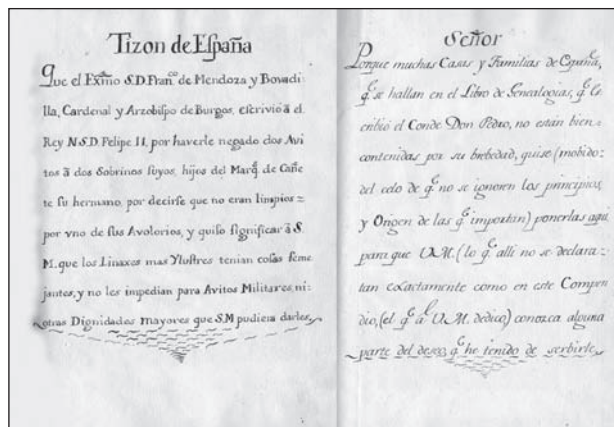 Tizon de España
Que el Exm̃o S.D. Fran.co de Mendoza y Bovadi
lla, Cardenal y Arzobispo de Burgos, escrivió á el
Rey N.S.D. Felipe II, por haverle negado dos Avi
tos á dos Sobrinos suyos, hijos del Marq.s de Cañe
te su hermano, por decirse que no eran limpios =
por vno de sus Avolorios, y quiso significar á S.
M. que los Linaxes mas Ylustres tenian cosas seme
jantes, y no les impedian para Avitos Militares, ni:
otras Dignidades mayores que S.M pudiera darles,
Señor
Porque muchas Casas y Familias de España,
q.e se hallan en el Libro de Genealogias, q.e Es
cribió el Conde Don Pedro, no están bien
contenidas por su brebedad, quise (mobido:
del celo de q.e no se ignoren los principios,
y Origen de las q.e importan) ponerlas aqui
para que V.M. (lo q.e alli no se declara
tan exactamente como en este Compen
dio, (el q.e á V.M. dedico) conozca alguna
parte del deseo, q.e he tenido de serbirle,